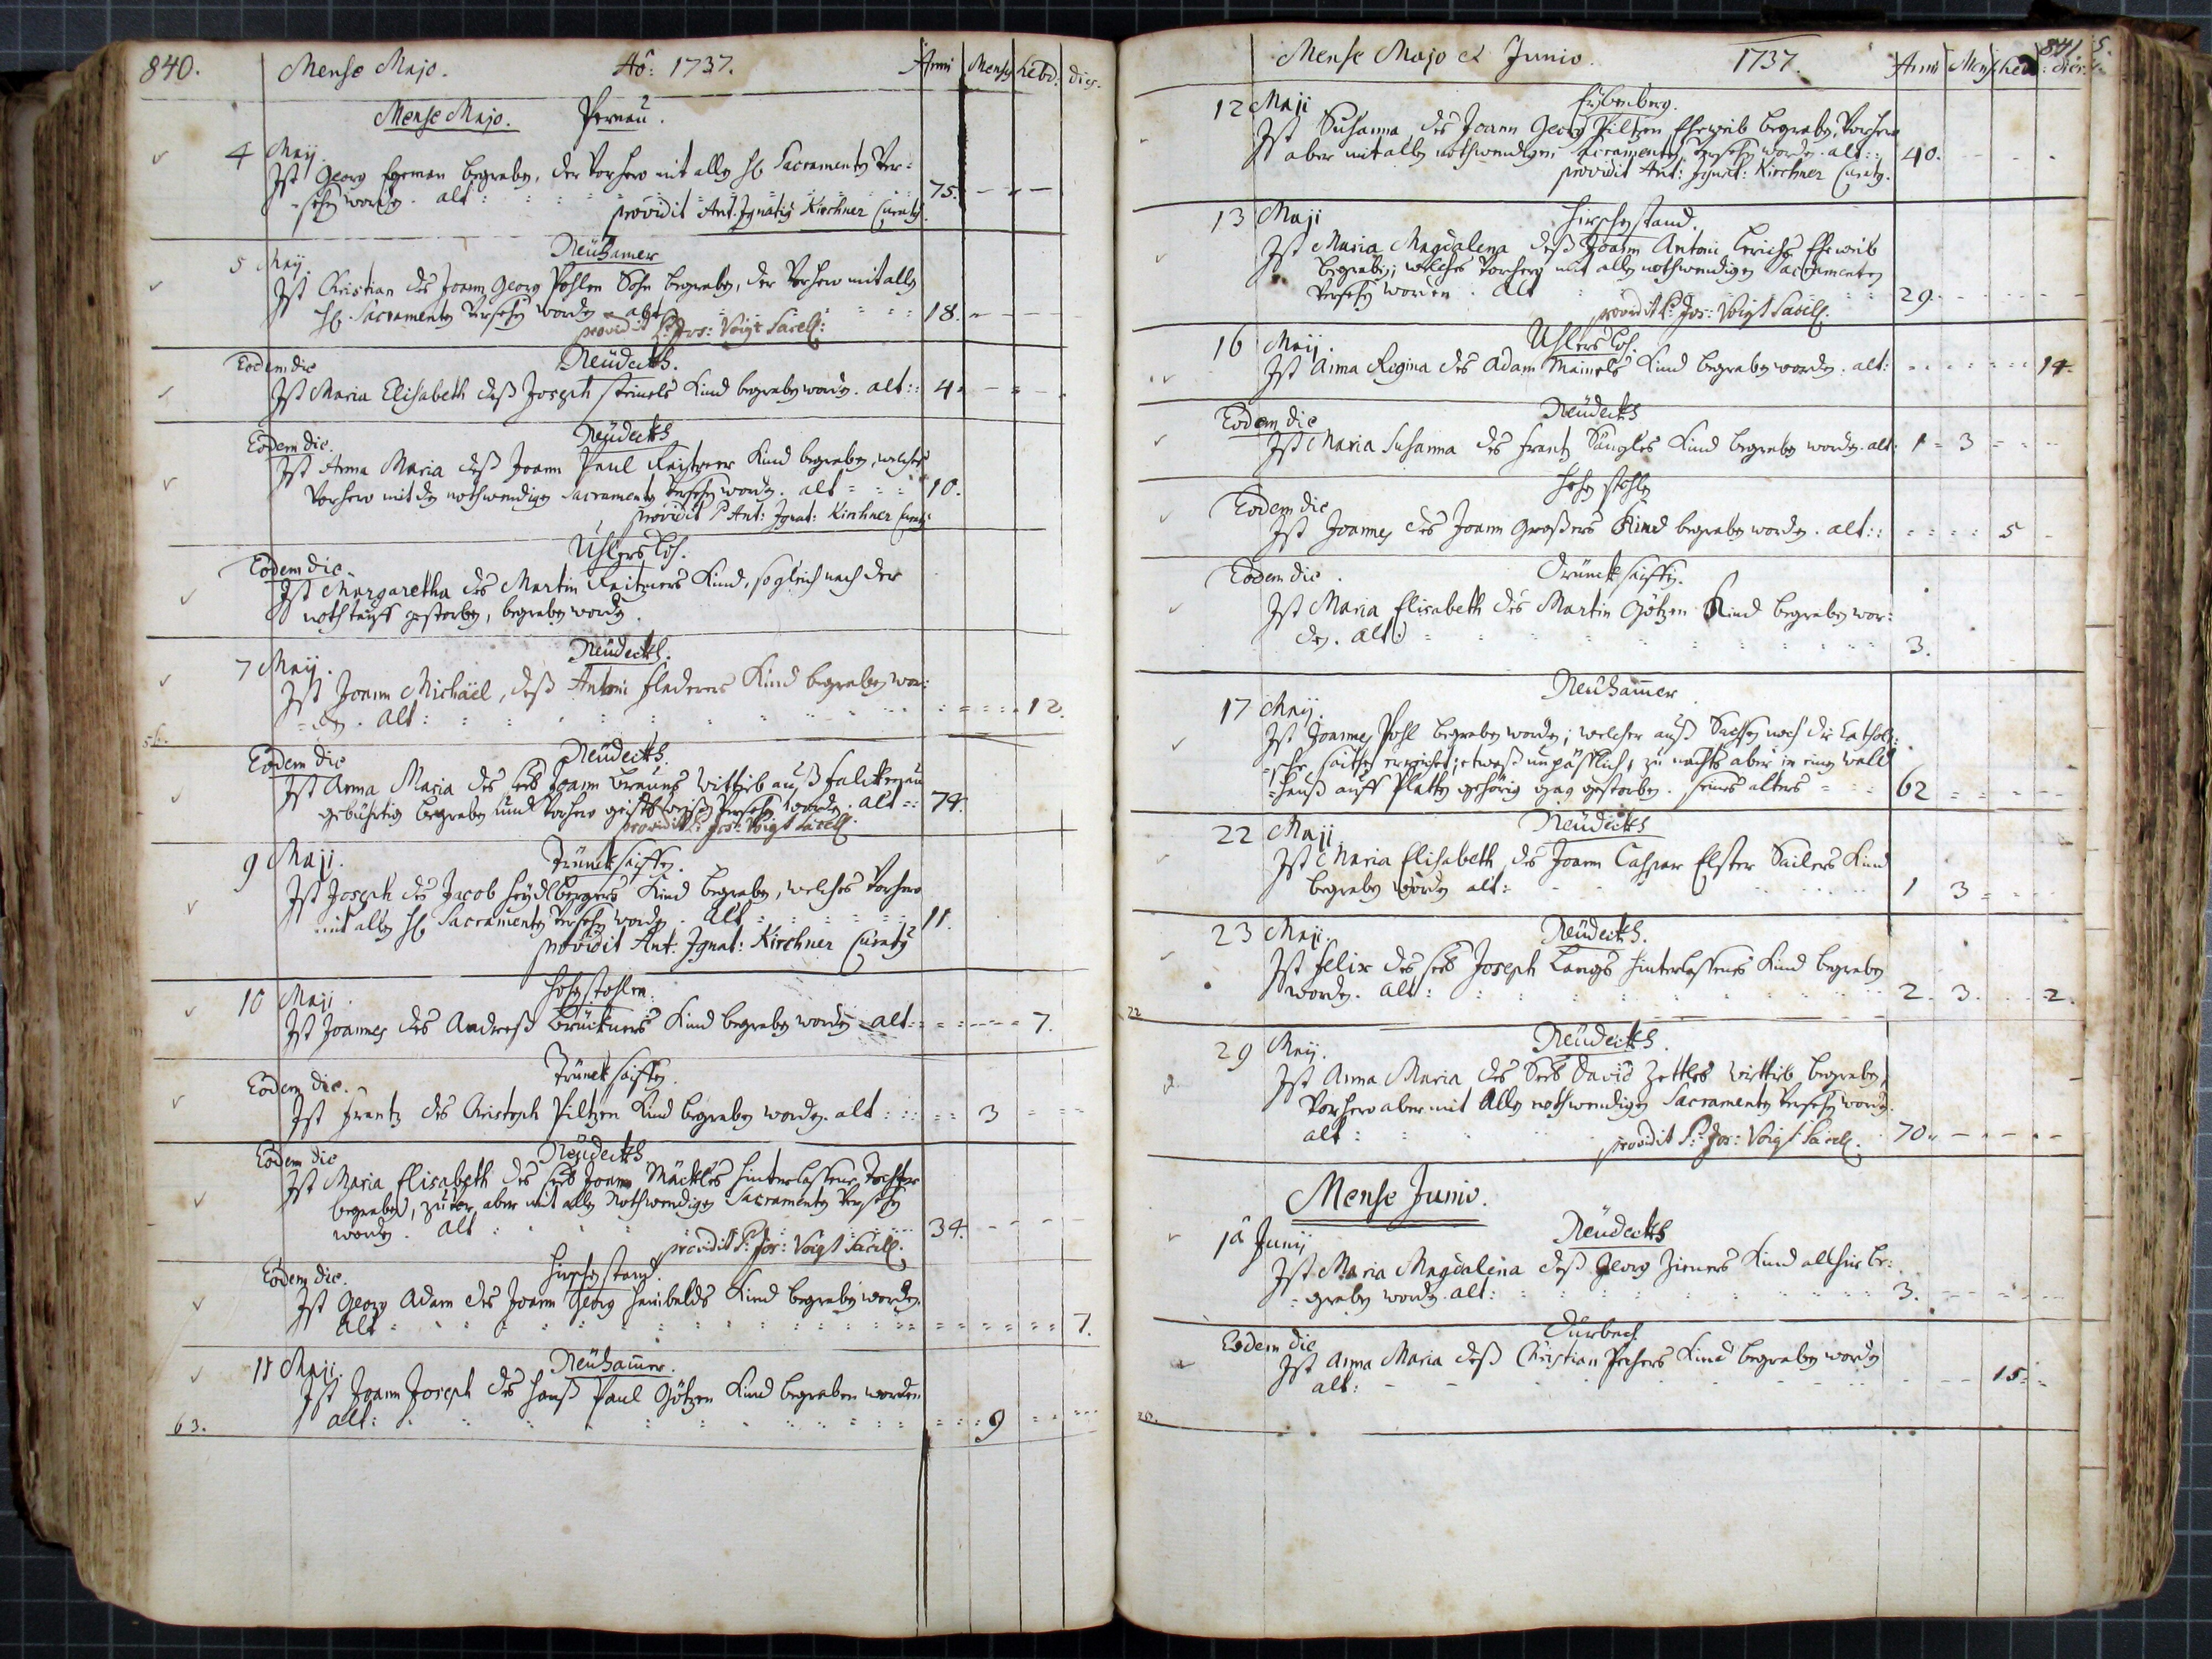 840. Mense Majo. Aõ: 1737. Anni Mensis hebd. dies.
Mense Majo. Pernau.
4 Maij.
Ist Georg begraben, der Vorhero mit allen hl. Sacramenten Ver=
=sehen worden. alt : : : 75.
providit Ant. Ignatius Kirchner Curatus.
Neühamer
5 Maij.
Ist Christian des Joann Georg Pohlen Sohn begraben, der Vorhero mit allen
hl. Sacramenten Versehen worden alt 18.
providit P. Jos: Voigt Sacell:
Neüdeckh.
Eodem die
Ist Maria Elisabeth deß Joseph Kind begraben worden. alt: 4.
Neüdeckh
Eodem die.
Ist Anna Maria deß Joann Paul Kind begraben, welches
Vorhero mit den nothwendigen Sacramenten Versehen worden. alt 10.
providit P. Ant: Ignat: Kirchner Curat:
Ühlersloh.
Eodem die.
Ist Margaretha des Martin Kind, so gleich nach der
nothtauff gestorben, begraben worden.
Neüdeckh.
7 Maij.
Ist Joann Michäel, deß Antoni Kind begraben wor:
=den. alt : : : 12.
Neüdeckh.
Eodem die
Ist Anna Maria des Joann Brauns Wittib auß Falckenau
gebührtig begraben und Vorhero Versehen worden. alt 74.
providit P. Jos: Voigt Sacell.
Trünckseiffen.
9 Maji.
Ist Joseph des Jacob Heydlbergers Kind begraben, welches Vorhero
mit allen hl. Sacramenten Versehen worden. alt 11.
providit Ant. Ignat: Kirchner Curatus
Hohenstohlen.
10 Maji.
Ist Joannes des Andreaß Brückners Kind begraben worden alt: 7.
Trünckseiffen.
Eodem die.
Ist Frantz des Christoph Piltzen Kind begraben worden. alt : 3
Neüdeckh
Eodem die
Ist Maria Elisabeth des Joann hinterlassene Tochter
begraben, zuvor aber mit allen Nothwendigen Sacramenten Versehen
worden. alt : 34.
providit P: Jos: Voigt Sacell.
Hirschenstand.
Eodem die.
Ist Georg Adam des Joann Georg Kind begraben worden.
alt 7.
Neühamer.
11 Maji.
Ist Joann Joseph des Hanß Paul Götzen Kind begraben worden
alt: 9
63.
Mense Majo et Junio. 1737. 841.
Anni Mens. hebd: dies.
12 Maji
Ist Susanna, des Joann Georg Piltzen Eheweib begraben, Vorhero
aber mit allen nothwendigen Sacramenten versehen worden. alt: 40.
providit Ant: Ignat: Kirchner Curatus.
Hirschenstand.
13 Maji
Ist Maria Magdalena deß Joann Antoni Eheweib
begraben, welches Vorhero mit allen nothwendigen Sacramenten
Versehen worden. alt 29.
providit P: Jos: Voigt Sacell.
Ühlersloh.
16 Maij.
Ist Anna Regina des Adam Meinels Kind begraben worden. alt: 14.
Neüdeckh
Eodem die
Ist Maria Susanna des Frantz Kind begraben worden. alt: 1 3
Eodem die
Ist Joannes des Joann Großers Kind begraben worden. alt: 5
Trünckseiffen.
Eodem die.
Ist Maria Elisabeth des Martin Götzen Kind begraben wor:
den. alt: 3.
Neühamer
17 Maij.
Ist Joannes Pohl begraben worden; welcher auß Sachsen noch die Catholi:
=sche unpässlich, zu nachts aber in einen
=hauß auff Platten gehörig gestorben. seines alters 62
Neüdeckh
22 Maji.
Ist Maria Elisabeth des Joann Caspar Elster Sailers Kind
begraben worden alt: 1 3
Neüdeckh.
23 Maji.
Ist Felix des Joseph Langs hinterlassenes Kind begraben
worden. alt: 2. 3. 2.
Neüdeckh.
29 Maij.
Ist Anna Maria des David Zettles Wittib begraben,
Vorhero aber mit Allen nothwendigen Sacramenten Versehen worden.
alt : 70.
providit P: Jos: Voigt Sacell.
Mense Junio.
Neüdeckh
1ª Junij
Ist Maria Magdalena deß Georg Kind allhier be:
=graben worden. alt: 3.
Eodem die
Ist Anna Maria deß Christian Kind begraben worden
alt: 15.